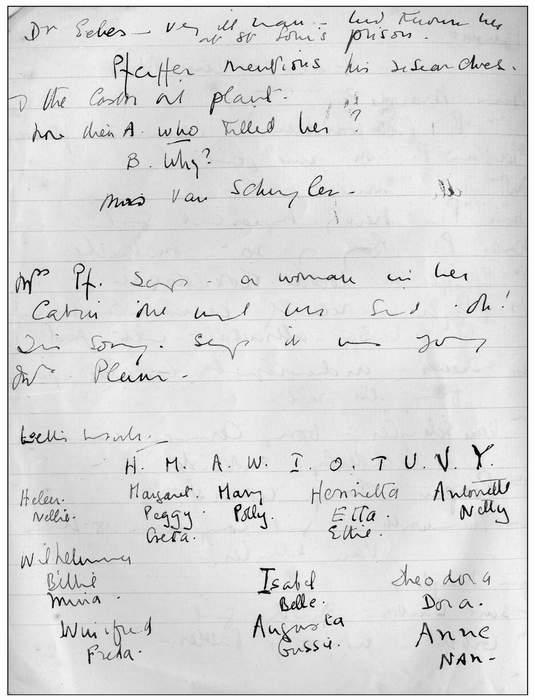 Dr — very ill man — had known her
at St Louis prison.
Pfeffer mentions his researches.
the Castor oil plant.
now then A. who killed her?
B. Why?
Miss Van Schuyler -
Mrs Pf. Says - a woman in her
Cabin and said - oh!
I'm sorry. Says it was young
Mrs. -
Letters
H. M. A. W. I. O. T U. V. Y.
Helen. Margaret. Mary Henrietta Antoinette
Nellie. Peggy Polly. Etta Netty
Greta. Ettie.
Wilhelmina
Billie Isabel Theodora
Mina. Belle. Dora.
Winifred Augusta Anne
Freda. Gussie. NAN-